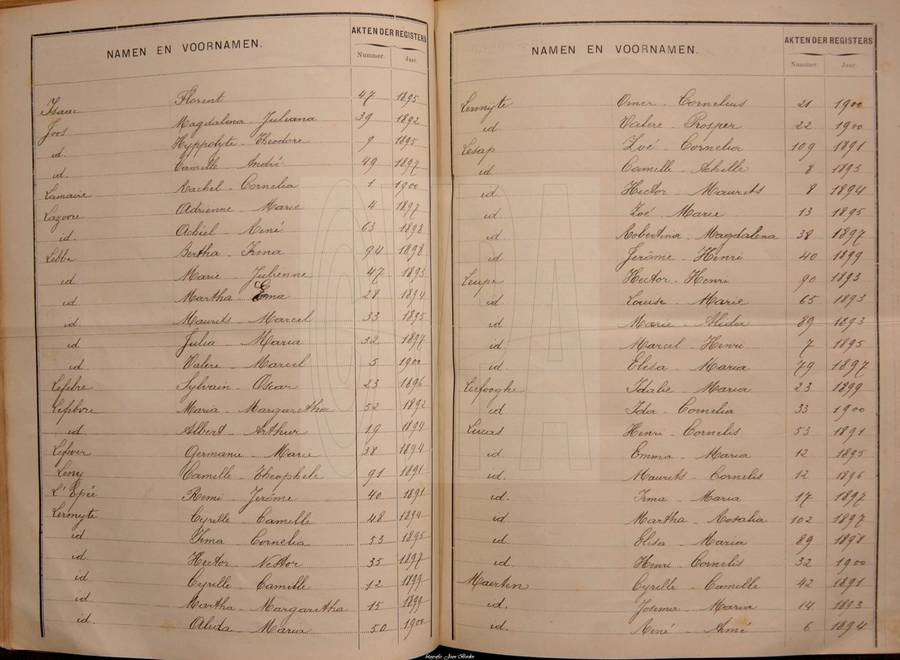 NAMEN EN VOORNAMEN. AKTEN DER REGISTERS
Nummer. Jaar.
Isaac Florent 47 1895
Joos Magdalena Juliana 39 1892
id Hyppolyte - Theodore 9 1895
id. Camille André 49 1897
Lamaire Rachel - Cornelia 1 1900
Lagoore Adrienne - Marie 4 1897
id. Achiel - René 63 1898
Libbe Bertha - Irma 94 1898
id Marie - Julienne 47 1893
id Martha Ema 28 1894
id. Maurits - Marcel 33 1895
id Julia - Maria 32 1897
id Valere - Marcel 5 1900
Lefebre Sylvain - Oscar 23 1896
Lefebvre Maria - Margaretha 52 1892
id Albert - Arthur 19 1894
Lefever Germanie - Marie 38 1894
Leroy Camille - Theophile 91 1891
L'Epée Remi - Jerôme 40 1891
Lermyte Cyrille - Camille 48 1894
id Irma Cornelia 53 1895
id Hector - Nestor 35 1897
id Cyrille - Camille 12 1899
id Martha - Margaretha 15 1899
id. Alida Maria 50 1900
NAMEN EN VOORNAMEN. AKTEN DER REGISTERS
Nummer. Jaar.
Lermyte Omer - Cornelius 21 1900
id Valere - Prosper 22 1900
Lesap Zoé - Cornelia 109 1891
id Camille - Achille 8 1893
id Hector - Maurits 8 1894
id Zoé Marie 13 1895
id Robertina - Magdalena 38 1897
id Jerôme - Henri 40 1899
Leupe Hector - Henri 90 1893
id Louise - Marie 65 1893
id Marie - Alida 89 1893
id Marcel - Henri 7 1895
id Elisa - Maria 79 1897
Lirfooghe Idalie Maria 23 1899
id Ida - Cornelia 33 1900
Lucas Henri - Cornelis 53 1891
id Emma - Maria 12 1895
id. Maurits - Cornelis 12 1896
id. Irma - Maria 17 1897
id Martha - Rosalia 102 1897
id Elisa - Maria 89 1898
id Henri - Cornelis 32 1900
Maerten Cyrille - Camille 42 1891
id. Maria 14 1893
id. René - Aimé 6 1894